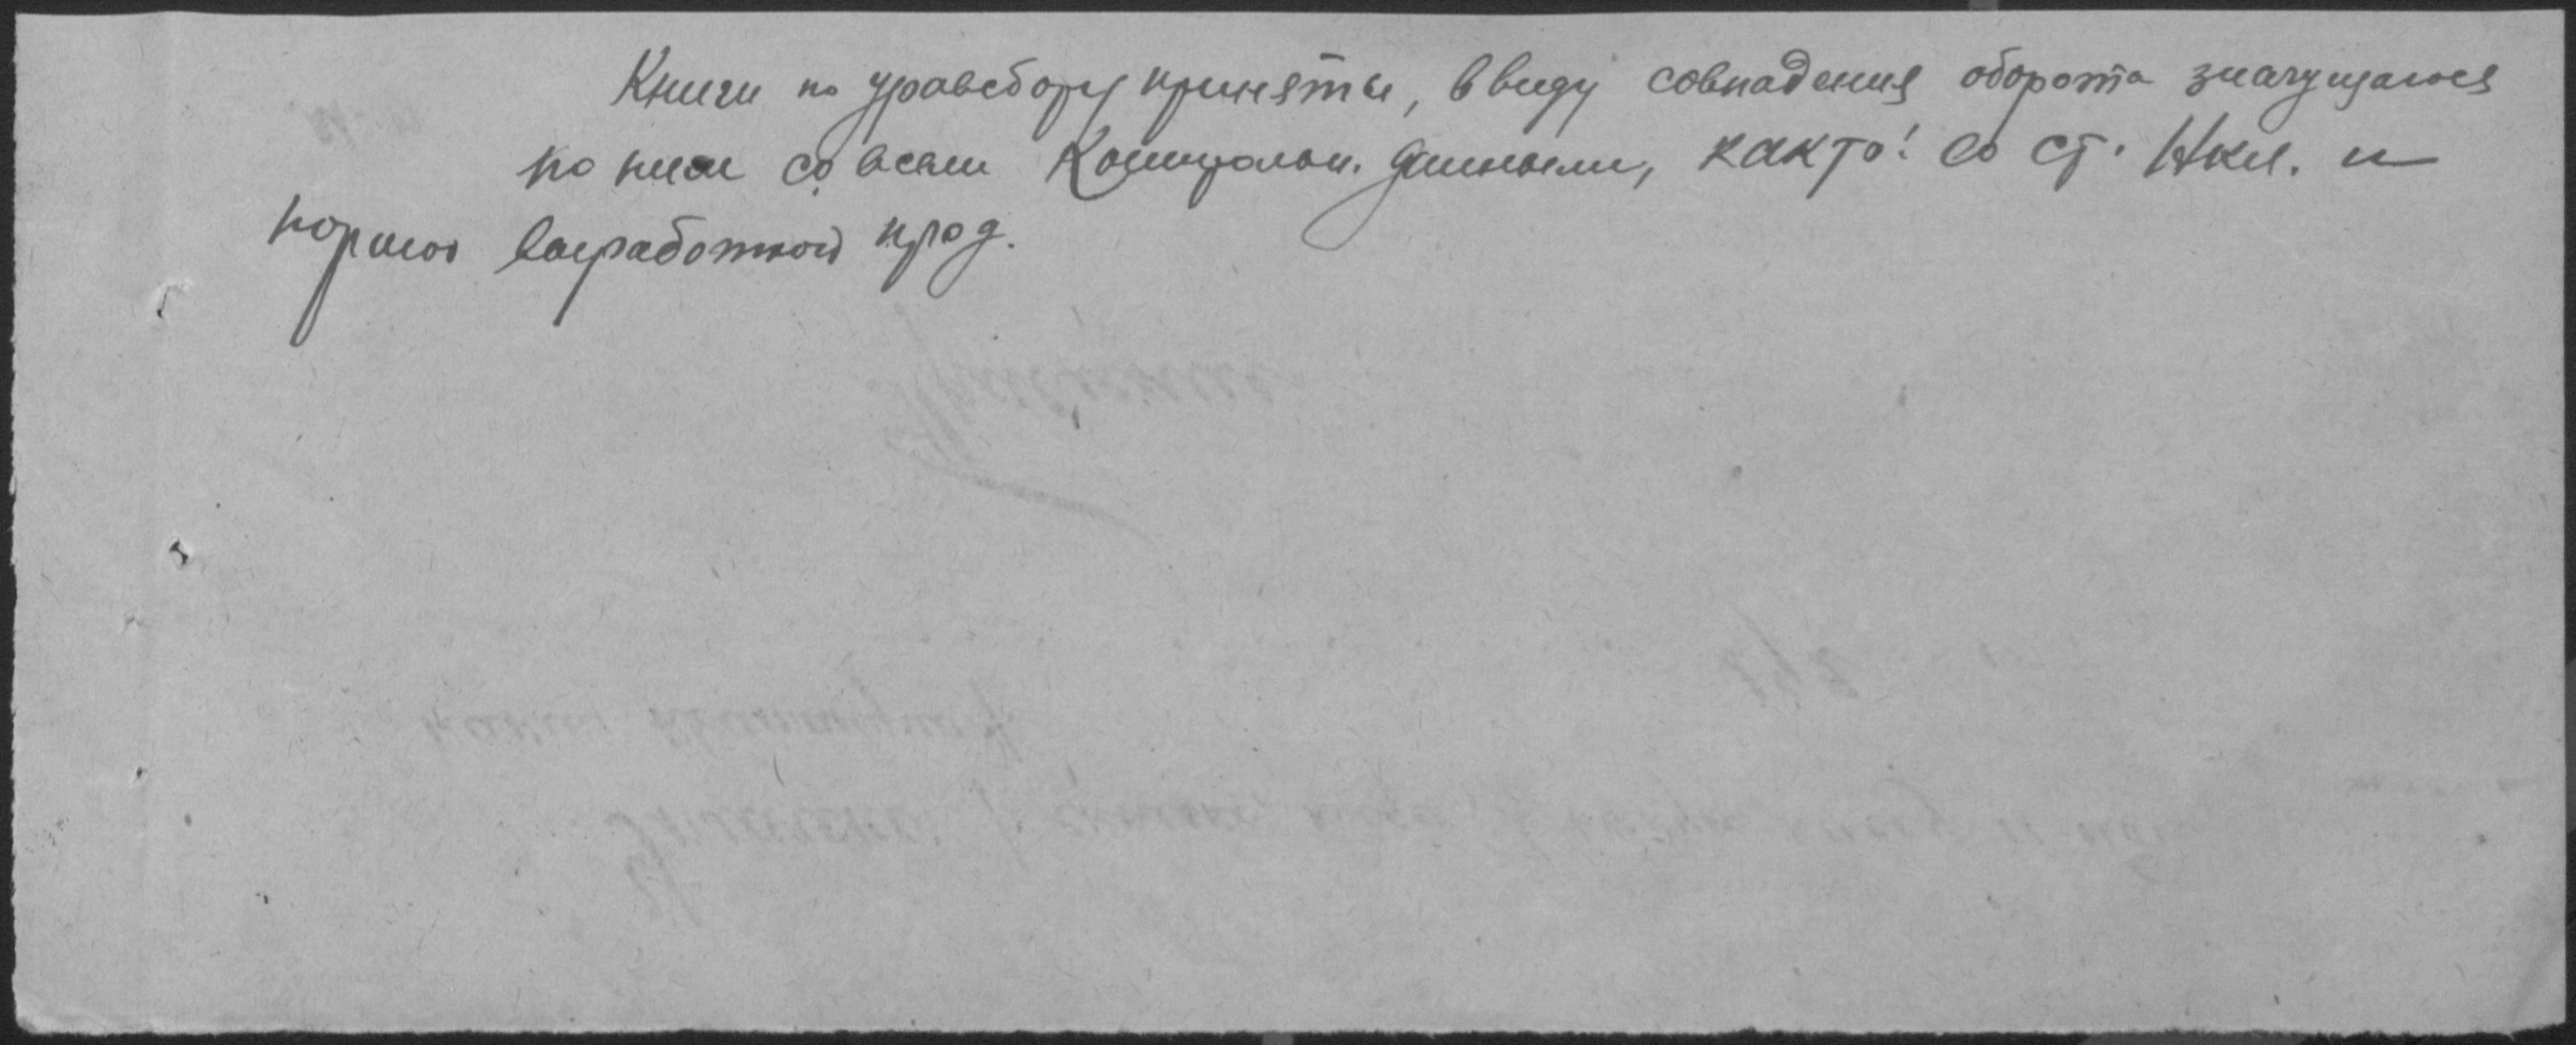 Книги по уравсбору приняты, ввиду совпадения оборота значущагося
по ним со всеми Контрольн. данными, как то: со ст. Икл. и
нормой выработкой прод.